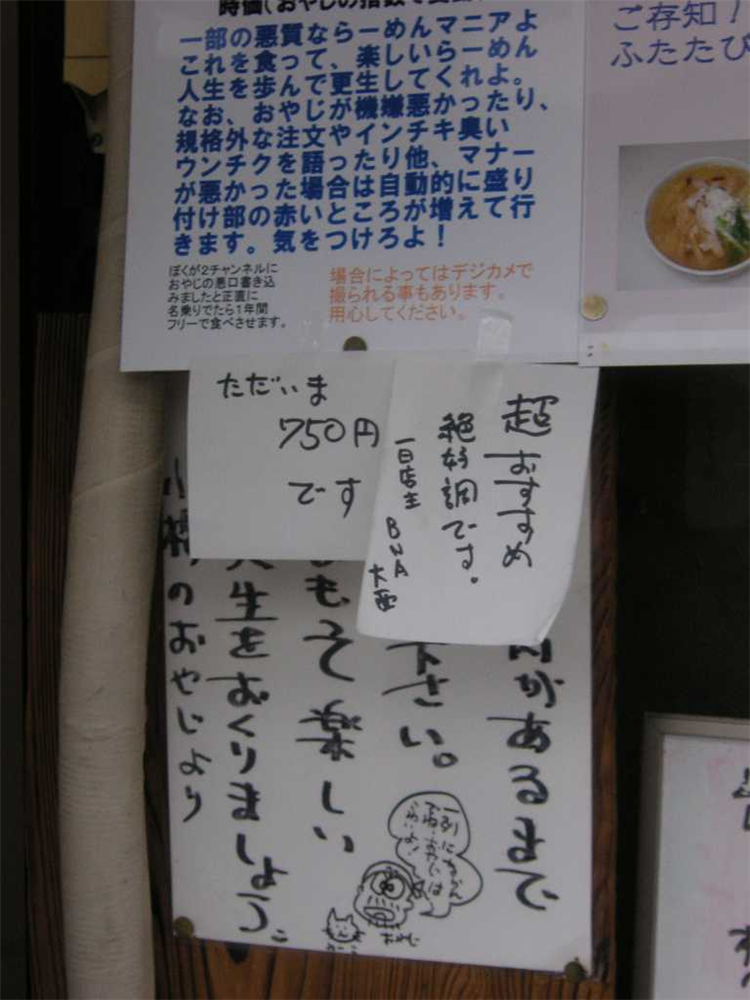 一部の悪質ならーめんマニアよ
これを食って、楽しいらーめん
人生を歩んで更生してくれよ。
なお、おやじが機嫌悪かったり、
規格外な注文やインチキ臭い
ウンチクを語ったり他、マナー
が悪かった場合は自動的に盛り
付け部の赤いところが増えて行
きます。気をつけろよ！
ぼくが2チャンネルに
おやじの悪口書き込
みましたと正直に
名乗りでたら1年間
フリーで食べさせます。
場合によってはデジカメで
撮られる事もあります。
用心してください。
ご存知！
ふたたび
ただいま
750円
です
超おすすめ
絶好調です。
一日店主
BNA
大西
があるまで
下さい。
もそて楽しい
人生をおくりましょう。
のおやじより